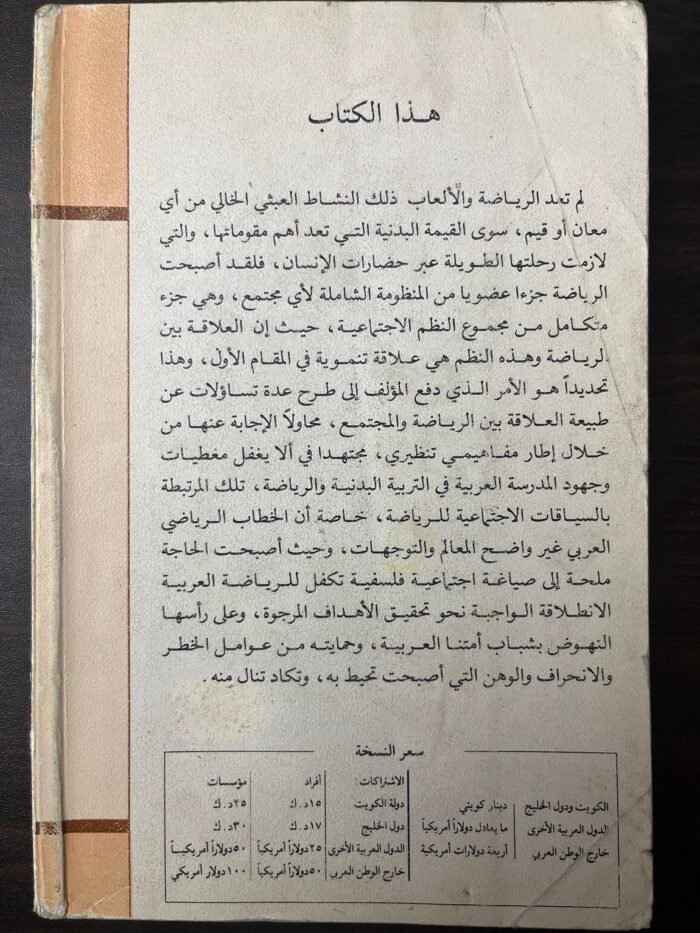 هذا الكتاب
لم تعد الرياضة والألعاب ذلك النشاط العبثي الخالي من أي
معان أو قيم، سوى القيمة البدنية التي تعد أهم مقوماتها، والتي
لازمت رحلتها الطويلة عبر حضارات الإنسان، فلقد أصبحت
الرياضة جزءا عضويا من المنظومة الشاملة لأي مجتمع، وهي جزء
متكامل من مجموع النظم الاجتماعية، حيث إن العلاقة بين
الرياضة وهذه النظم هي علاقة تنموية في المقام الأول، وهذا
تحديداً هو الأمر الذي دفع المؤلف إلى طرح عدة تساؤلات عن
طبيعة العلاقة بين الرياضة والمجتمع، محاولاً الإجابة عنها من
خلال إطار مفاهيمي تنظيري، مجتهدا في ألا يغفل معطيات
وجهود المدرسة العربية في التربية البدنية والرياضة، تلك المرتبطة
بالسياقات الاجتماعية للرياضة، خاصة أن الخطاب الرياضي
العربي غير واضح المعالم والتوجهات، وحيث أصبحت الحاجة
ملحة إلى صياغة اجتماعية فلسفية تكفل للرياضة العربية
الانطلاقة الواجبة نحو تحقيق الأهداف المرجوة، وعلى رأسها
النهوض بشباب أمتنا العربية، وحمايته من عوامل الخطر
والانحراف والوهن التي أصبحت تحيط به، وتكاد تنال منه.
سعر النسخة
الكويت ودول الخليج دينار كويتي
الدول العربية الأخرى ما يعادل دولاراً أمريكياً
خارج الوطن العربي أربعة دولارات أمريكية
الاشتراكات: أفراد مؤسسات
دولة الكويت ١٥د.ك ٢٥د.ك
دول الخليج ١٧د.ك ٣٠د.ك
الدول العربية الأخرى ٢٥دولاراً أمريكياً ٥٠دولاراً أمريكياً
خارج الوطن العربي ٥٠دولاراً أمريكياً ١٠٠دولار أمريكي